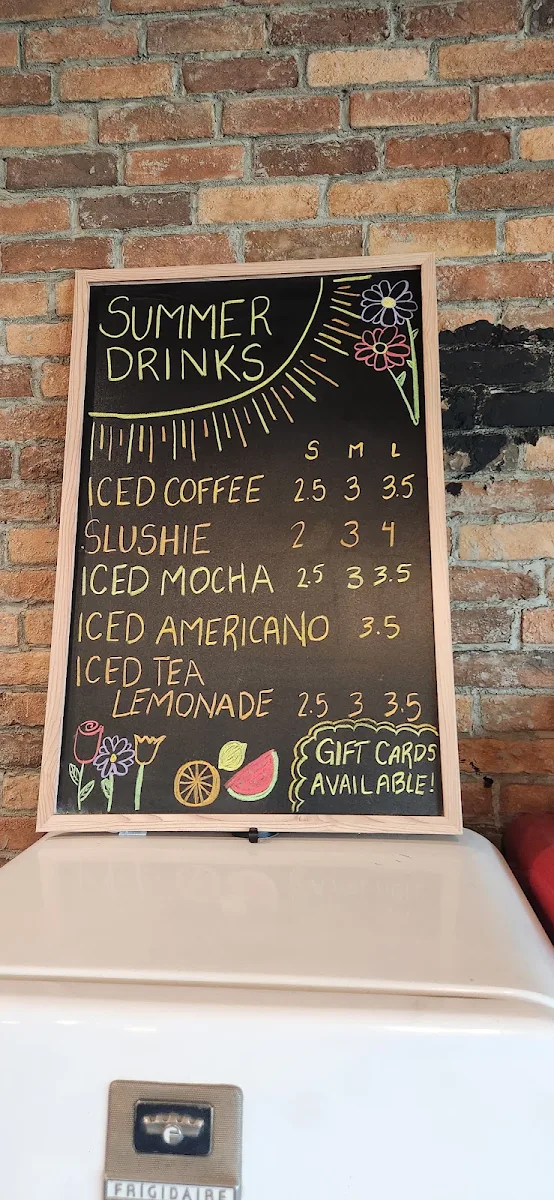 SUMMER
DRINKS
S M L
ICED COFFEE 2.5 3 3.5
SLUSHIE 2 3 4
ICED MOCHA 2.5 3 3.5
ICED AMERICANO 3.5
ICED TEA
LEMONADE 2.5 3 3.5
GIFT CARDS
AVAILABLE!
F
FRIGIDAIRE